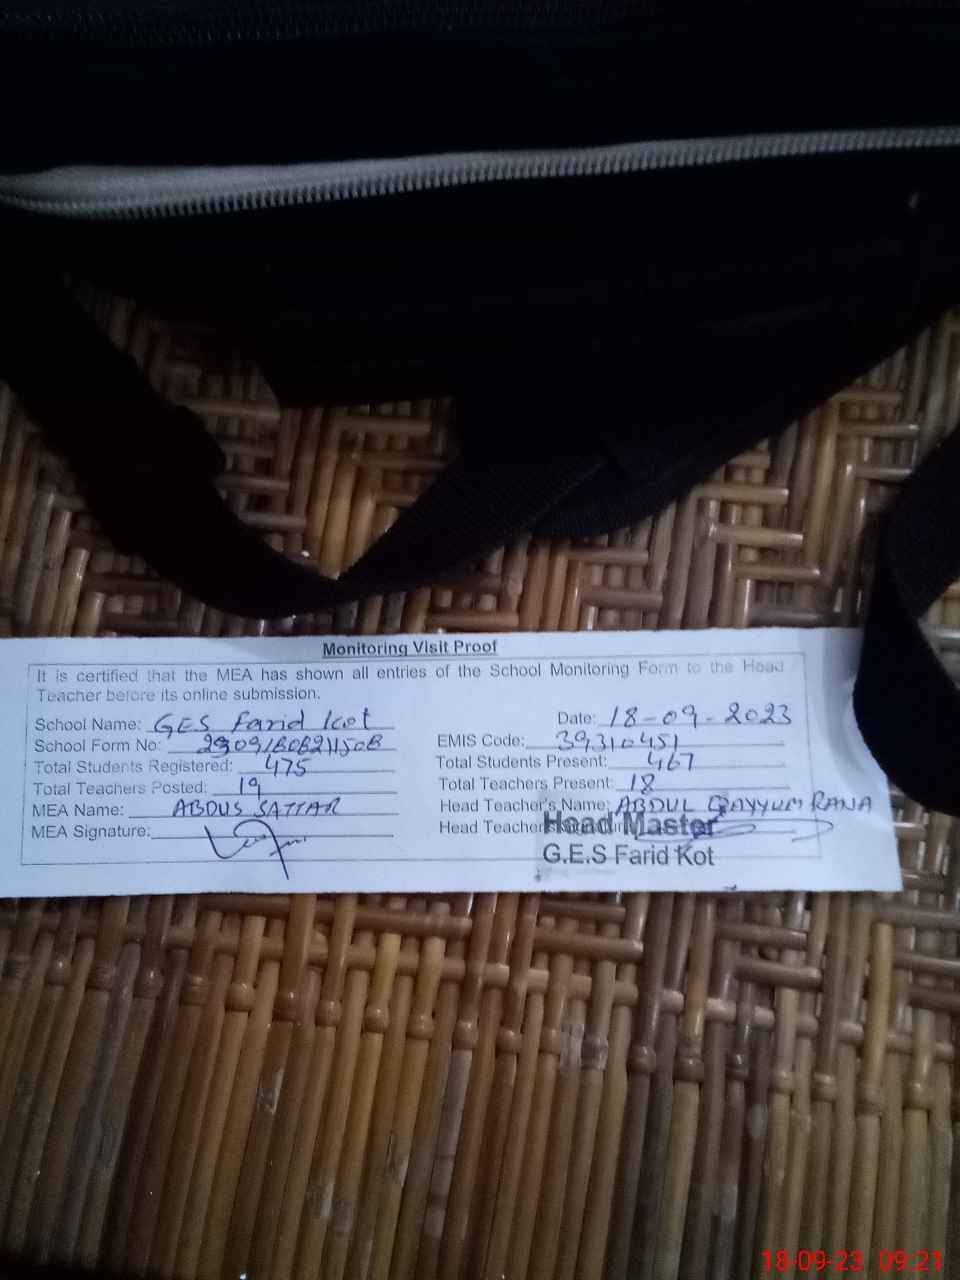 Monitoring Visit Proof
It is certified that the MEA has shown all entries of the School Monitoring Form to the Head
Teacher before its online submission.
School Name: GES Farid Kot Date: 18-09-2023
School Form No: EMIS Code: 39310451
Total Students Registered: 475 Total Students Present: 467
Total Teachers Posted: 19 Total Teachers Present: 18
MEA Name: ABDUS SATTAR Head Teacher's Name: ABDUL QAYYUM RANA
MEA Signature: Head Teacher
Head Master
G.E.S Farid Kot
18-09-23 09:21